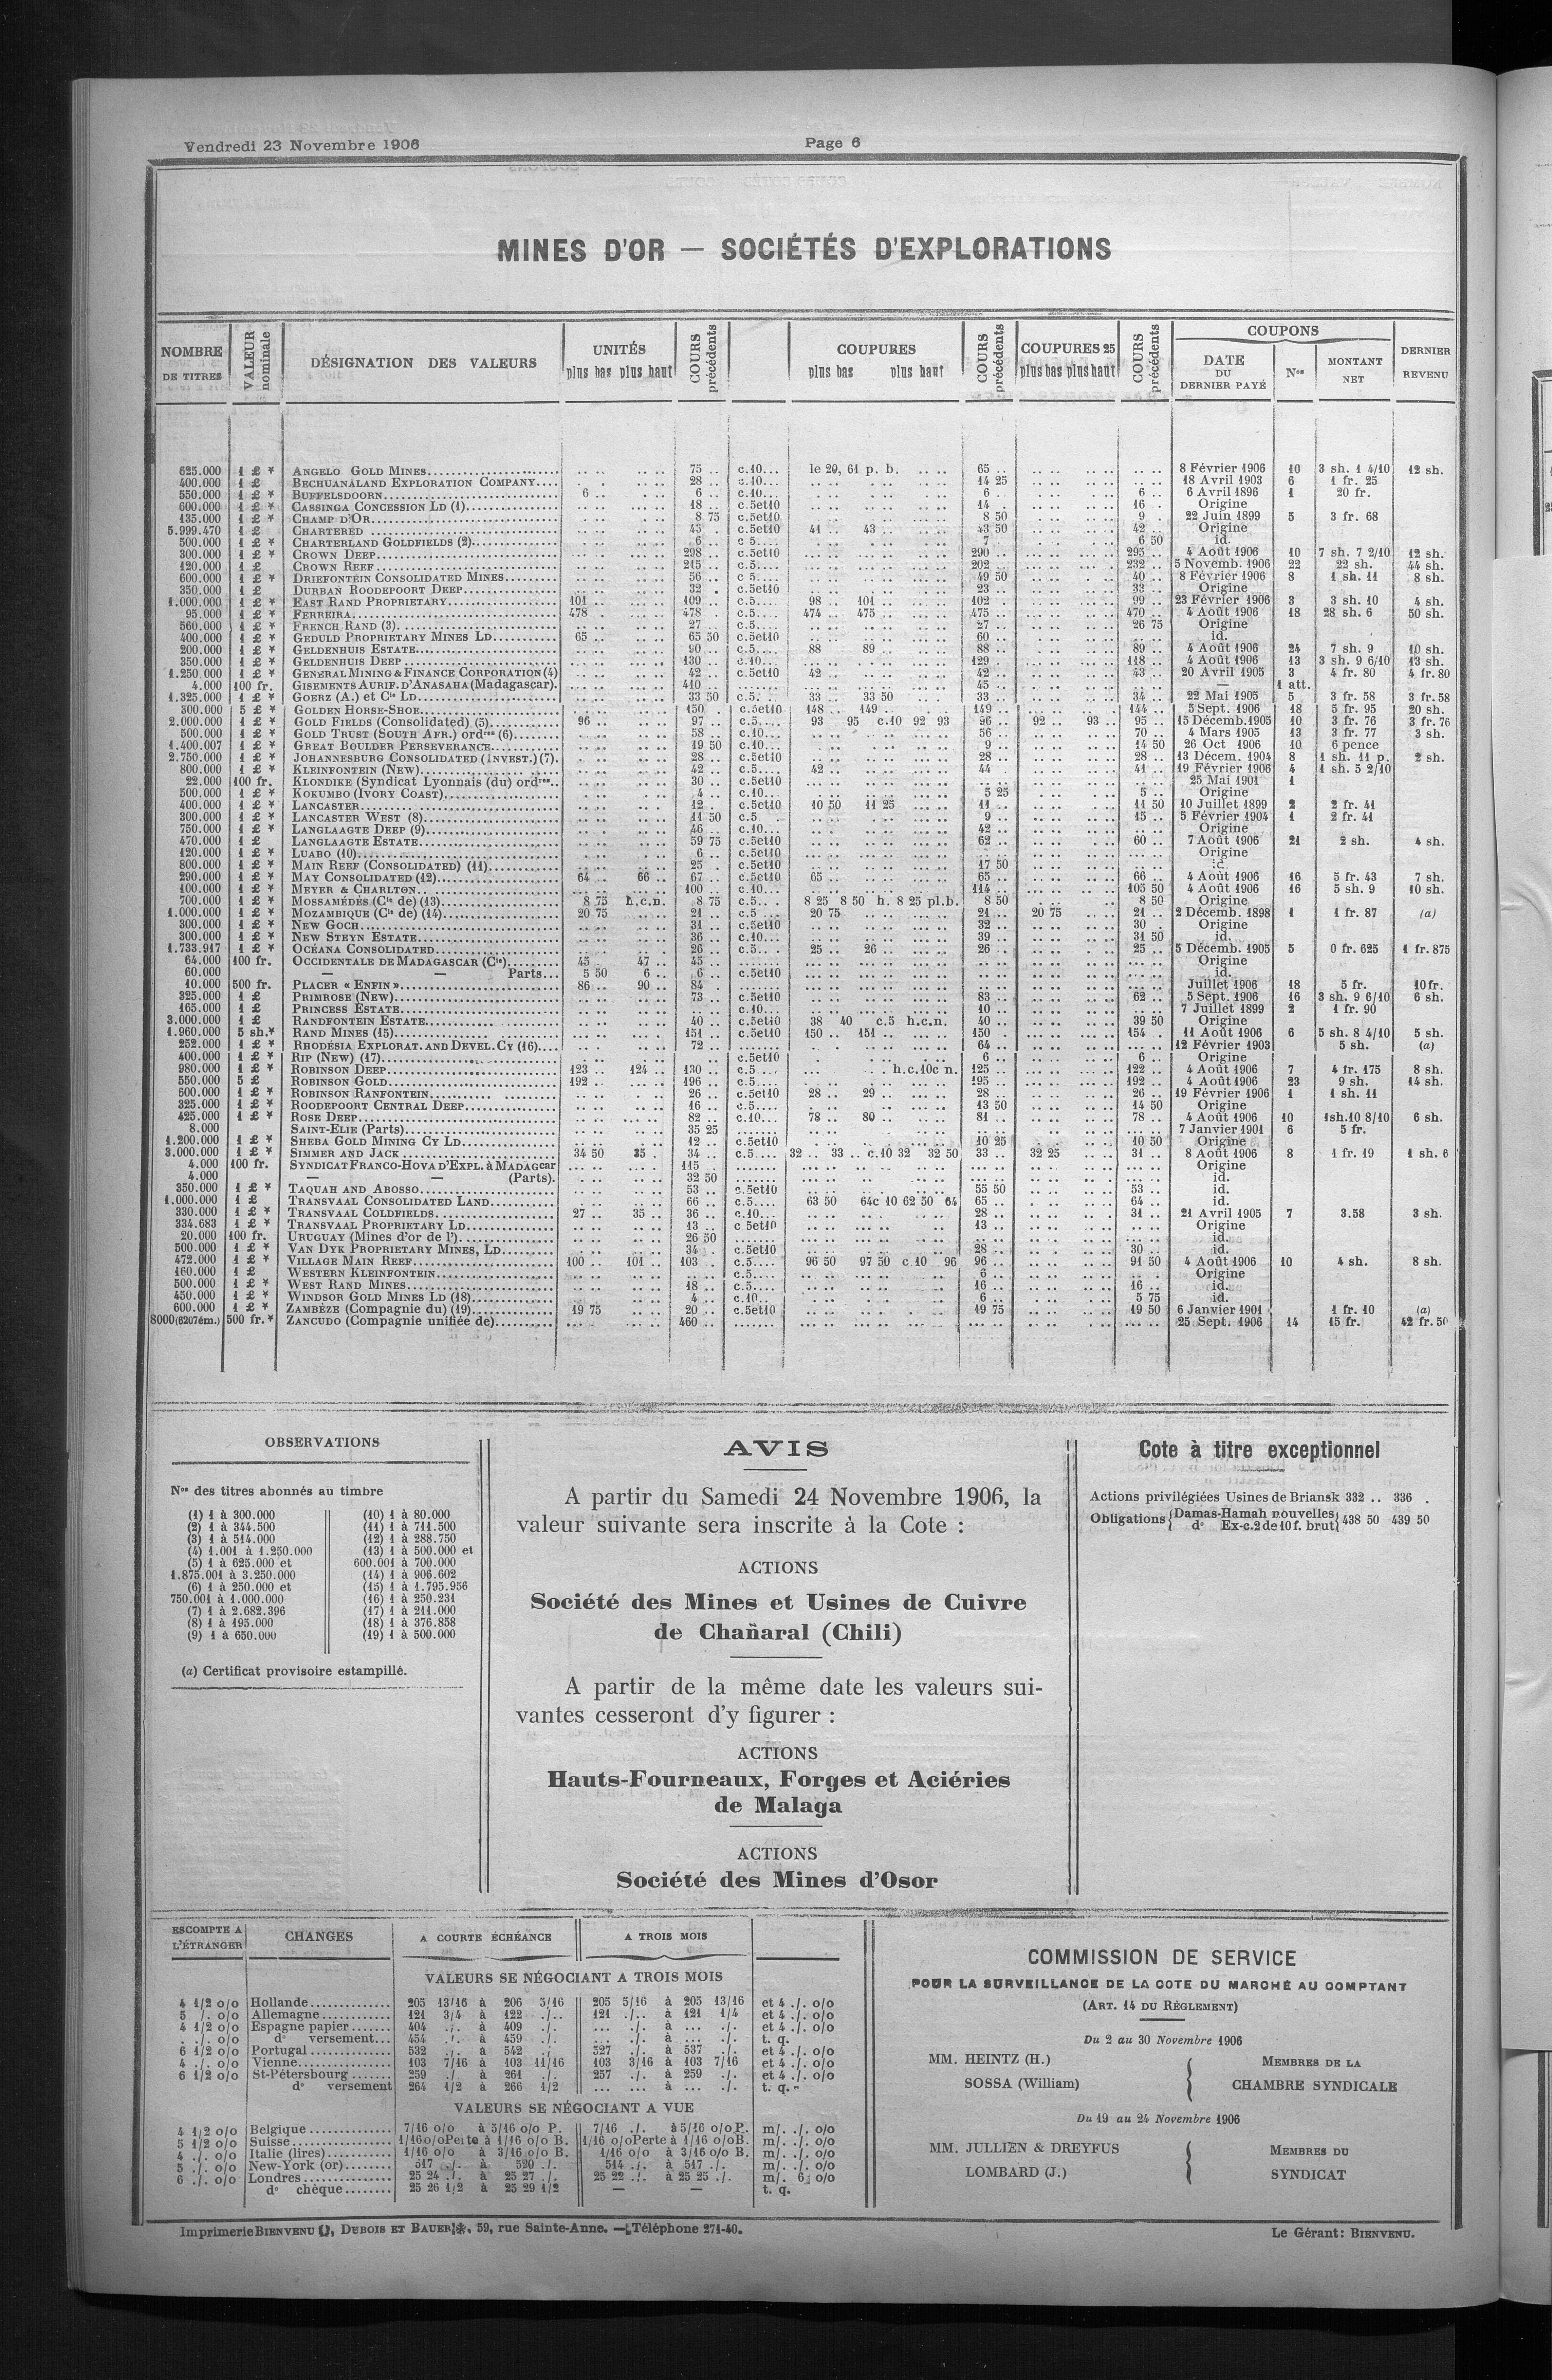 Vendredi 23 Novembre 1906
Page 6
MINES D'OR — SOCIÉTÉS D'EXPLORATIONS
NOMBRE DE TITRES | VALEUR nominale | DÉSIGNATION DES VALEURS | UNITÉS plus bas plus haut | COURS précédents | COUPURES plus bas plus haut | COURS précédents | COUPURES 25 plus bas plus haut | COURS précédents | COUPONS DATE DU DERNIER PAYÉ | Nos | MONTANT NET | DERNIER REVENU
625.000 1 £ * ANGELO GOLD MINES 75 .. c.10... le 20, 61 p. b. 65 .. 8 Février 1906 10 3 sh. 1 4/10 12 sh.
400.000 1 £ BECHUANALAND EXPLORATION COMPANY 28 .. c.10... 14 25 18 Avril 1903 6 1 fr. 25
550.000 1 £ * BUFFELSDOORN 6 .. 6 .. c.10... 6 . 6 .. 6 Avril 1896 1 20 fr.
600.000 1 £ * CASSINGA CONCESSION LD (1) 18 .. c.5et10 14 . 16 . Origine
135.000 1 £ * CHAMP D'OR 8 75 c.5et10 8 50 9 . 22 Juin 1899 5 3 fr. 68
5.999.470 1 £ CHARTERED 43 .. c.5et10 41 .. 43 .. 43 50 42 .. Origine
500.000 1 £ * CHARTERLAND GOLDFIELDS (2) 6 .. c 5.... 7 6 50 id.
300.000 1 £ * CROWN DEEP 298 .. c.5et10 290 .. 295 .. 4 Août 1906 10 7 sh. 7 2/10 12 sh.
120.000 1 £ CROWN REEF 215 .. c.5.... 202 .. 232 .. 5 Novemb. 1906 22 22 sh. 44 sh.
600.000 1 £ * DRIEFONTEIN CONSOLIDATED MINES 56 .. c 5.... 49 50 40 .. 8 Février 1906 8 1 sh. 11 8 sh.
350.000 1 £ DURBAN ROODEPOORT DEEP 32 . c.5et10 23 .. 33 .. Origine
1.000.000 1 £ * EAST RAND PROPRIETARY 101 .. 109 .. c.5.... 98 .. 101 .. 102 .. 99 .. 23 Février 1906 3 3 sh. 10 4 sh.
95.000 1 £ * FERREIRA 478 478 .. c.5.... 474 .. 475 .. 475 .. 470 .. 4 Août 1906 18 28 sh. 6 50 sh.
560.000 1 £ * FRENCH RAND (3) 27 .. c.5.... 27 .. 26 75 Origine
400.000 1 £ * GEDULD PROPRIETARY MINES LD 65 .. 65 50 c.5et10 60 .. id.
200.000 1 £ * GELDENHUIS ESTATE 90 .. c.5.... 88 89 .. 88 .. 89 .. 4 Août 1906 24 7 sh. 9 10 sh.
350.000 1 £ * GELDENHUIS DEEP 130 .. c.10... 129 118 .. 4 Août 1906 13 3 sh. 9 6/10 13 sh.
1.250.000 1 £ * GENERAL MINING & FINANCE CORPORATION (4) 42 .. c.5et10 42 .. 42 .. 43 .. 20 Avril 1905 3 4 fr. 80 4 fr. 80
4.000 100 fr. GISEMENTS AURIF. D'ANASAHA (Madagascar). 410 .. 45 .. — 1 att.
1.325.000 1 £ * GOERZ (A.) et Cie LD 33 50 c.5. . 33 .. 33 50 33 34 .. 22 Mai 1905 5 3 fr. 58 3 fr. 58
300.000 5 £ * GOLDEN HORSE-SHOE 150 . c.5et10 148 .. 149 .. 149 .. 144 .. 5 Sept. 1906 18 5 fr. 95 20 sh.
2.000.000 1 £ * GOLD FIELDS (Consolidated) (5) 96 .. 97 .. c.5.... 93 95 c.10 92 93 96 .. 92 .. 93 .. 95 .. 15 Décemb. 1905 10 3 fr. 76 3 fr. 76
500.000 1 £ * GOLD TRUST (SOUTH AFR.) ordres (6) 58 .. c.10... 56 70 .. 4 Mars 1905 13 3 fr. 77 3 sh.
1.400.007 1 £ * GREAT BOULDER PERSEVERANCE 19 50 c.10... 9 .. 14 50 26 Oct 1906 10 6 pence
2.750.000 1 £ * JOHANNESBURG CONSOLIDATED (INVEST.) (7). 28 .. c.5et10 28 .. 28 .. 13 Décem. 1904 8 1 sh. 11 p. 2 sh.
800.000 1 £ * KLEINFONTEIN (New) 42 .. c.5.... 42 .. 44 41 .. 19 Février 1906 4 1 sh. 5 2/10
22.000 100 fr. KLONDIKE (Syndicat Lyonnais (du) ordres.. 30 .. c.5et10 25 Mai 1901 1
500.000 1 £ * KOKUMBO (IVORY COAST) 4 .. c.10... 5 25 5 .. Origine
400.000 1 £ * LANCASTER 12 . c.5et10 10 50 11 25 11 .. 11 50 10 Juillet 1899 2 2 fr. 41
300.000 1 £ * LANCASTER WEST (8) 11 50 c.5 9 .. 15 .. 5 Février 1904 1 2 fr. 41
750.000 1 £ * LANGLAAGTE DEEP (9) 46 .. c.10... 42 .. Origine
470.000 1 £ LANGLAAGTE ESTATE 59 75 c.5et10 62 .. 60 .. 7 Août 1906 21 2 sh. 4 sh.
120.000 1 £ * LUABO (10) 6 .. c.5et10 Origine
800.000 1 £ * MAIN REEF (CONSOLIDATED) (11) 25 . c.5et10 17 50 id.
290.000 1 £ * MAY CONSOLIDATED (12) 64 .. 66 .. 67 .. c.5et10 65 .. 65 .. 66 .. 4 Août 1906 16 5 fr. 43 7 sh.
100.000 1 £ * MEYER & CHARLTON 100 .. c.10... 114 .. 105 50 4 Août 1906 16 5 sh. 9 10 sh.
700.000 1 £ * MOSSAMÉDÈS (Cie de) (13) 8 75 h.c.n. 8 75 c.5.. . 8 25 8 50 h. 8 25 pl.b. 8 50 8 50 Origine
1.000.000 1 £ * MOZAMBIQUE (Cie de) (14) 20 75 21 .. c.5 ... 20 75 21 .. 20 75 21 .. 2 Décemb. 1898 1 1 fr. 87 (a)
300.000 1 £ * NEW GOCH 31 .. c.5et10 32 .. 30 . Origine
300.000 1 £ * NEW STEYN ESTATE 36 .. c.10... 39 .. 31 50 id.
1.733.917 1 £ * OCÉANA CONSOLIDATED 26 .. c.5.. . 25 .. 26 .. 26 .. 25 .. 5 Décemb. 1905 5 0 fr. 625 1 fr. 875
64.000 100 fr. OCCIDENTALE DE MADAGASCAR (Cie) 45 47 .. 45 Origine
60.000 — — Parts... 5 50 6 .. 6 .. c.5et10 id.
10.000 500 fr. PLACER « ENFIN » 86 .. 90 .. 84 . Juillet 1906 18 5 fr. 10 fr.
325.000 1 £ PRIMROSE (NEW) 73 .. c.5et10 83 .. 62 .. 5 Sept. 1906 16 3 sh. 9 6/10 6 sh.
165.000 1 £ PRINCESS ESTATE c.10... 10 .. 7 Juillet 1899 2 1 fr. 90
3.000.000 1 £ RANDFONTEIN ESTATE 40 .. c.5et10 38 40 c.5 h.c.n. 40 .. 39 50 Origine
1.960.000 5 sh.* RAND MINES (15) 151 .. c.5et10 150 .. 151 .. 150 154 . 11 Août 1906 6 5 sh. 8 4/10 5 sh.
252.000 1 £ * RHODÉSIA EXPLORAT. AND DEVEL. CY (16) 72 .. 64 .. 12 Février 1903 5 sh. (a)
400.000 1 £ * RIP (NEW) (17) c.5et10 6 .. 6 .. Origine
980.000 1 £ * ROBINSON DEEP 123 .. 124 .. 130 .. c.5 ... h.c.10c n. 125 .. 122 .. 4 Août 1906 7 4 fr. 175 8 sh.
550.000 5 £ ROBINSON GOLD 192 .. 196 .. c.5.... 195 .. 192 .. 4 Août 1906 23 9 sh. 14 sh.
600.000 1 £ * ROBINSON RANFONTEIN 26 .. c.5et10 28 .. 29 .. 28 .. 26 .. 19 Février 1906 1 1 sh. 11
325.000 1 £ * ROODEPOORT CENTRAL DEEP 16 .. c.5.... 13 50 14 50 Origine
425.000 1 £ * ROSE DEEP 82 .. c.10... 78 .. 80 .. 81 .. 78 .. 4 Août 1906 10 1sh.10 8/10 6 sh.
8.000 SAINT-ELIE (Parts) 35 25 7 Janvier 1901 6 5 fr.
1.200.000 1 £ * SHEBA GOLD MINING CY LD 12 .. c.5et10 10 25 10 50 Origine
3.000.000 1 £ * SIMMER AND JACK 34 50 35 . 34 .. c.5.... 32 .. 33 .. c.10 32 32 50 33 .. 32 25 31 .. 8 Août 1906 8 1 fr. 19 1 sh. 6
4.000 100 fr. SYNDICAT FRANCO-HOVA D'EXPL. à MADAGcar 115 . Origine
4.000 — — (Parts). 32 50 id.
350.000 1 £ * TAQUAH AND ABOSSO 53 .. c.5et10 55 50 53 .. id.
1.000.000 1 £ TRANSVAAL CONSOLIDATED LAND 66 .. c.5.... 63 50 64c 10 62 50 64 65 .. 64 .. id.
330.000 1 £ * TRANSVAAL COLDFIELDS 27 .. 35 .. 36 . c.10... 28 .. 31 .. 21 Avril 1905 7 3.58 3 sh.
334.683 1 £ * TRANSVAAL PROPRIETARY LD 13 .. c 5et10 13 .. Origine
20.000 100 fr. URUGUAY (Mines d'or de l') 26 50 id.
500.000 1 £ * VAN DYK PROPRIETARY MINES, LD 34 . c.5et10 28 .. 30 .. id.
472.000 1 £ * VILLAGE MAIN REEF 100 .. 101 .. 103 . c.5.... 96 50 97 50 c 10 96 96 .. 91 50 4 Août 1906 10 4 sh. 8 sh.
160.000 1 £ WESTERN KLEINFONTEIN c.5.... 6 Origine
500.000 1 £ * WEST RAND MINES 18 .. c.5.... 16 .. 16 .. id.
450.000 1 £ * WINDSOR GOLD MINES LD (18) 4 .. c.10.. 6 .. 5 75 id.
600.000 1 £ * ZAMBÈZE (Compagnie du) (19) 19 75 20 .. c.5et10 19 75 19 50 6 Janvier 1901 1 fr. 10 (a)
8000(6207ém.) 500 fr.* ZANCUDO (Compagnie unifiée de) 460 .. 25 Sept. 1906 14 15 fr. 42 fr. 50
OBSERVATIONS
Nos des titres abonnés au timbre
(1) 1 à 300.000
(2) 1 à 344.500
(3) 1 à 514.000
(4) 1.001 à 1.250.000
(5) 1 à 625.000 et
1.875.001 à 3.250.000
(6) 1 à 250.000 et
750.001 à 1.000.000
(7) 1 à 2.682.396
(8) 1 à 195.000
(9) 1 à 650.000
(10) 1 à 80.000
(11) 1 à 711.500
(12) 1 à 288.750
(13) 1 à 500.000 et
600.001 à 700.000
(14) 1 à 906.602
(15) 1 à 1.795.956
(16) 1 à 250.231
(17) 1 à 211.000
(18) 1 à 376.858
(19) 1 à 500.000
(a) Certificat provisoire estampillé.
AVIS
A partir du Samedi 24 Novembre 1906, la
valeur suivante sera inscrite à la Cote :
ACTIONS
Société des Mines et Usines de Cuivre
de Chañaral (Chili)
A partir de la même date les valeurs sui-
vantes cesseront d'y figurer :
ACTIONS
Hauts-Fourneaux, Forges et Aciéries
de Malaga
ACTIONS
Société des Mines d'Osor
Cote à titre exceptionnel
Actions privilégiées Usines de Briansk 332 .. 336 .
Obligations { Damas-Hamah nouvelles
do Ex-c. 2 de 10 f. brut } 438 50 439 50
ESCOMPTE A L'ÉTRANGER | CHANGES | A COURTE ÉCHÉANCE | A TROIS MOIS
VALEURS SE NÉGOCIANT A TROIS MOIS
4 1/2 o/o Hollande 205 13/16 à 206 3/16 205 5/16 à 205 13/16 et 4 ./. o/o
5 ./. o/o Allemagne 121 3/4 à 122 ./.. 121 ./.. à 121 1/4 et 4 ./. o/o
4 1/2 o/o Espagne papier 404 ./. à 409 ./. ... ./. à ... ./. et 4 ./. o/o
. ./. o/o do versement... 454 ./. à 459 ./. ... ./. à ... ./. t. q.
6 1/2 o/o Portugal 532 ./. à 542 ./. 527 ./. à 537 ./. et 4 ./. o/o
4 ./. o/o Vienne 103 7/16 à 103 11/16 103 3/16 à 103 7/16 et 4 ./. o/o
6 1/2 o/o St-Pétersbourg 259 ./. à 261 ./. 257 ./. à 259 ./. et 4 ./. o/o
do versement 264 1/2 à 266 1/2 ... ... à ... ./. t. q.
VALEURS SE NÉGOCIANT A VUE
4 1/2 o/o Belgique 7/16 o/o à 5/16 o/o P. 7/16 ./. à 5/16 o/o P. m/. ./. o/o
5 1/2 o/o Suisse 1/16 o/o Perte à 1/16 o/o B. 1/16 o/o Perte à 1/16 o/o B. m/. ./. o/o
4 ./. o/o Italie (lires) 1/16 o/o à 3/16 o/o B. 1/16 o/o à 3/16 o/o B. m/. ./. o/o
5 ./. o/o New-York (or) 517 ./. à 520 ./. 514 ./. à 517 ./. m/. ./. o/o
6 ./. o/o Londres 25 24 ./. à 25 27 ./. 25 22 ./. à 25 25 ./. m/. 6 o/o
do chèque 25 26 1/2 à 25 29 1/2 — — t. q.
COMMISSION DE SERVICE
POUR LA SURVEILLANCE DE LA COTE DU MARCHÉ AU COMPTANT
(ART. 14 DU RÈGLEMENT)
Du 2 au 30 Novembre 1906
MM. HEINTZ (H.)
SOSSA (William)
MEMBRES DE LA
CHAMBRE SYNDICALE
Du 19 au 24 Novembre 1906
MM. JULLIEN & DREYFUS
LOMBARD (J.)
MEMBRES DU
SYNDICAT
Imprimerie BIENVENU, DUBOIS ET BAUER, 59, rue Sainte-Anne. — Téléphone 271-40.
Le Gérant : BIENVENU.